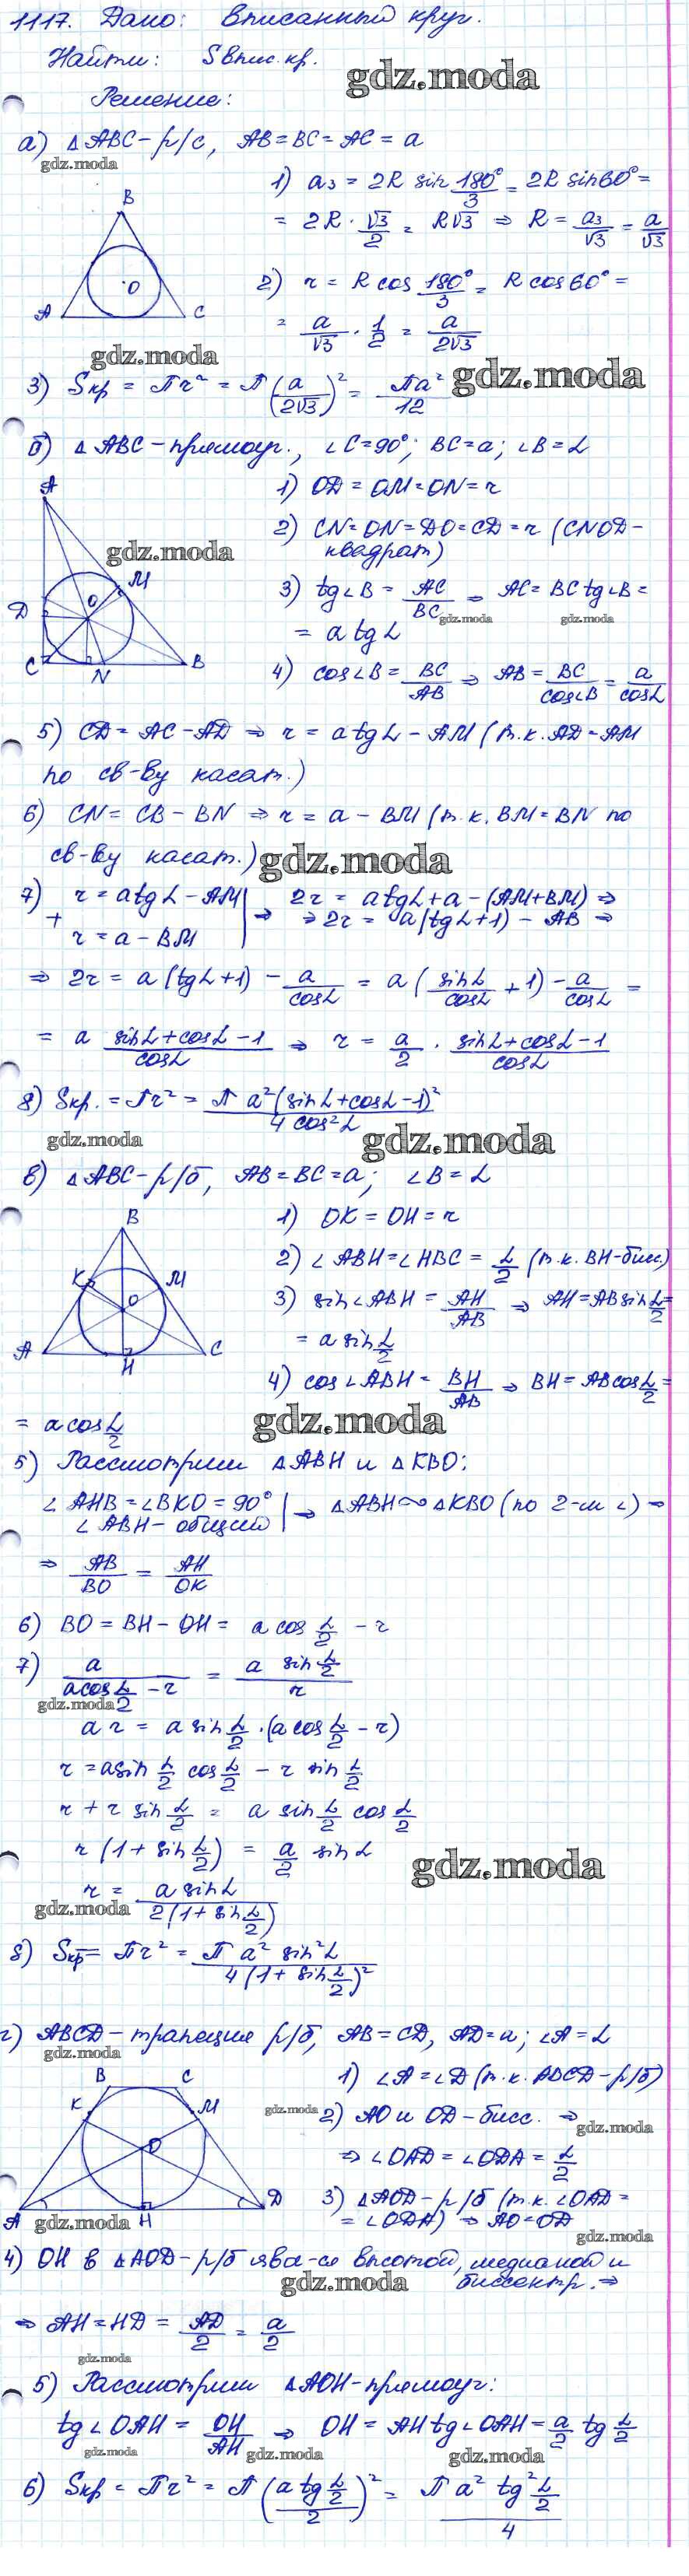 1117. Дано: Вписанный круг.
Найти: Sвпис.кр.
gdz.moda
Решение:
а) △ABC – р/с, AB = BC = AC = a
gdz.moda
1) a₃ = 2R sin 180°/3 = 2R sin60° =
= 2R · √3/2 = R√3 ⇒ R = a₃/√3 = a/√3
B
O
A
C
2) r = R cos 180°/3 = R cos60° =
= a/√3 · 1/2 = a/2√3
gdz.moda
3) Sкр = πr² = π(a/2√3)² = πa²/12
gdz.moda
б) △ABC – прямоуг., ∠C = 90°; BC = a; ∠B = α
A
M
D
O
C
N
B
gdz.moda
1) OD = OM = ON = r
2) CN = ON = DO = CD = r (CNOD –
квадрат)
3) tg∠B = AC/BC ⇒ AC = BC tg∠B =
gdz.moda
gdz.moda
= a tgα
4) cos∠B = BC/AB ⇒ AB = BC/cos∠B = a/cosα
5) CD = AC – AD ⇒ r = a tgα – AM (т.к. AD = AM
по св-ву касат.)
6) CN = CB – BN ⇒ r = a – BM (т.к. BM = BN по
св-ву касат.)
gdz.moda
7) r = a tgα – AM | ⇒ 2r = a tgα + a – (AM + BM) ⇒
+ r = a – BM | ⇒ 2r = a(tgα + 1) – AB ⇒
⇒ 2r = a(tgα + 1) – a/cosα = a(sinα/cosα + 1) – a/cosα =
= a sinα + cosα – 1/cosα ⇒ r = a/2 · sinα + cosα – 1/cosα
8) Sкр. = πr² = πa²(sinα + cosα – 1)²/4 cos²α
gdz.moda
gdz.moda
в) △ABC – р/б, AB = BC = a; ∠B = α
B
K
M
O
A
H
C
1) OK = OH = r
2) ∠ABH = ∠HBC = α/2 (т.к. BH – бисс.)
3) sin∠ABH = AH/AB ⇒ AH = AB sin α/2 =
= a sin α/2
4) cos∠ABH = BH/AB ⇒ BH = AB cos α/2 =
= a cos α/2
gdz.moda
5) Рассмотрим △ABH и △KBO:
∠AHB = ∠BKO = 90° | ⇒ △ABH ∾ △KBO (по 2-м ∠) ⇒
∠ABH – общий |
⇒ AB/BO = AH/OK
6) BO = BH – OH = a cos α/2 – r
7) a/a cos α/2 – r = a sin α/2/r
gdz.moda
a r = a sin α/2 · (a cos α/2 – r)
r = a sin α/2 cos α/2 – r sin α/2
r + r sin α/2 = a sin α/2 cos α/2
r (1 + sin α/2) = a/2 sinα
gdz.moda
r = a sinα/2(1 + sin α/2)
gdz.moda
8) Sкр = πr² = πa² sin²α/4(1 + sin α/2)²
г) ABCD – трапеция р/б, AB = CD, AD = a; ∠A = α
gdz.moda
B
C
K
M
O
A
H
D
gdz.moda
1) ∠A = ∠D (т.к. ABCD – р/б)
gdz.moda
2) AO и OD – бисс. ⇒
gdz.moda
⇒ ∠OAD = ∠ODA = α/2
3) △AOD – р/б (т.к. ∠OAD =
= ∠ODA) ⇒ AO = OD
gdz.moda
4) OH в △AOD – р/б явл-ся высотой, медианой и
биссектр. ⇒
gdz.moda
⇒ AH = HD = AD/2 = a/2
gdz.moda
5) Рассмотрим △AOH – прямоуг:
tg∠OAH = OH/AH ⇒ OH = AH tg∠OAH = a/2 tg α/2
gdz.moda
gdz.moda
gdz.moda
6) Sкр = πr² = π(a tg α/2/2)² = πa² tg² α/2/4